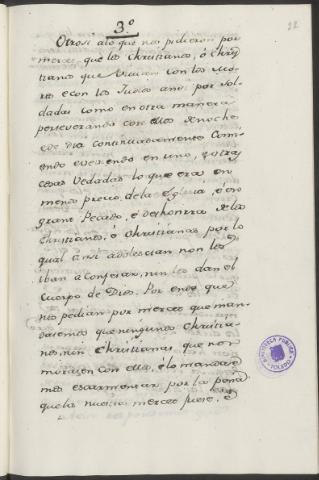 3.º
22
Otrosí a lo que nos pidieron por
merced que los Christianos, ó Chris
tianas que vivian con los Mo-
ros é con los Judios ansi por sol-
dadas como en otra manera
perseverando con ellos de noche
é de dia continuadamente comi-
endo é veviendo en uno, y otras
cosas vedadas lo que era en
menos precio de la Eglesia, é era
grant Pecado, é deshonrra de los
Christianos, é Christianas por lo
qual ansi adolescian non les
iban a confesar, nin les dan el
Cuerpo de Dios. Por ende que
nos pedian por merced que man-
dasemos que ningunos Christia-
nos, nin Christianas que non
morasen con ellos, é lo mandare-
mos escarmentar por la pena
que la nuestra merced fuese, é
BIBLIOTECA PUBLICA
TOLEDO